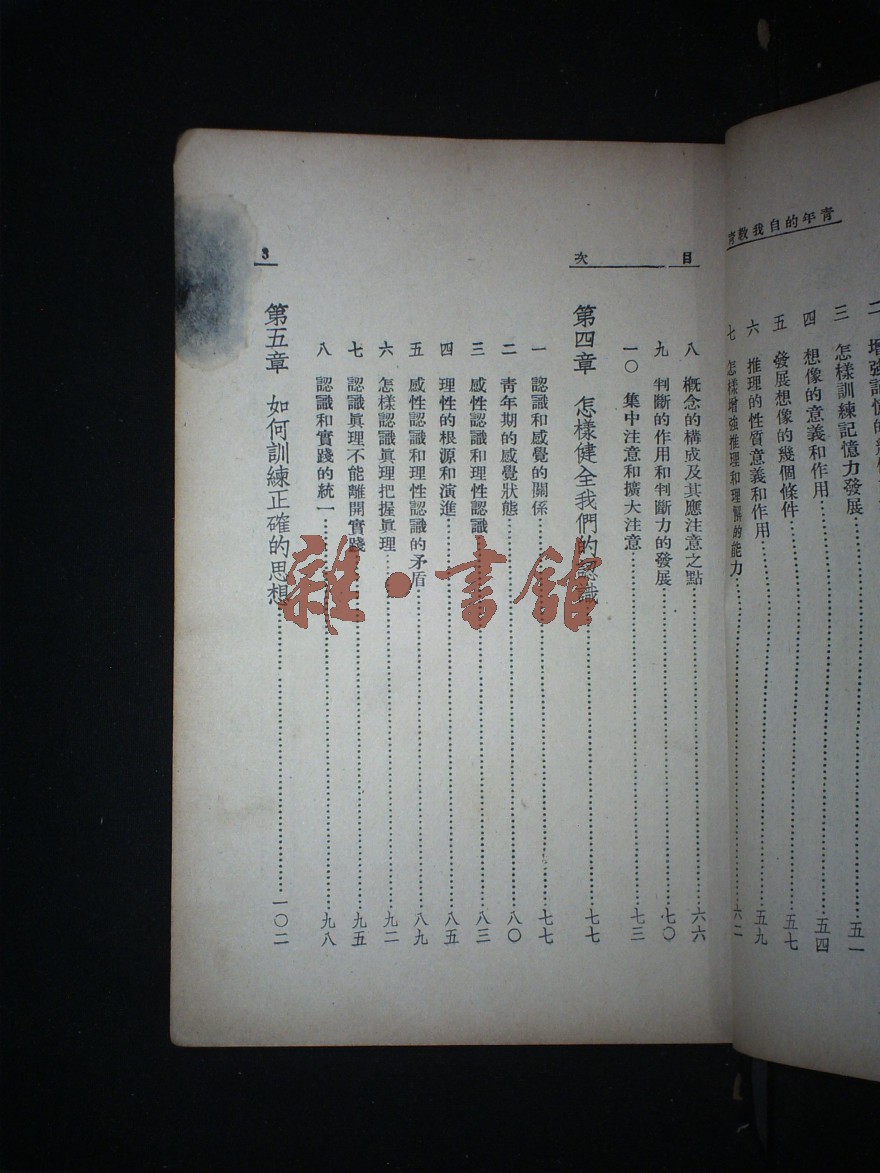 青年的自我教育
二 增強記憶的
三 怎樣訓練記憶力發展……五一
四 想像的意義和作用……五四
五 發展想像的幾個條件……五七
六 推理的性質意義和作用……五九
七 怎樣增強推理和理解的能力……六二
目次
八 概念的構成及其應注意之點……六六
九 判斷的作用和判斷力的發展……七〇
一〇 集中注意和擴大注意……七三
第四章 怎樣健全我們的認識……七七
一 認識和感覺的關係……七七
二 青年期的感覺狀態……八〇
三 感性認識和理性認識……八三
四 理性的根源和演進……八五
五 感性認識和理性認識的矛盾……八九
六 怎樣認識眞理把握眞理……九二
七 認識眞理不能離開實踐……九五
八 認識和實踐的統一……九八
第五章 如何訓練正確的思想……一〇二
3
雜·書館